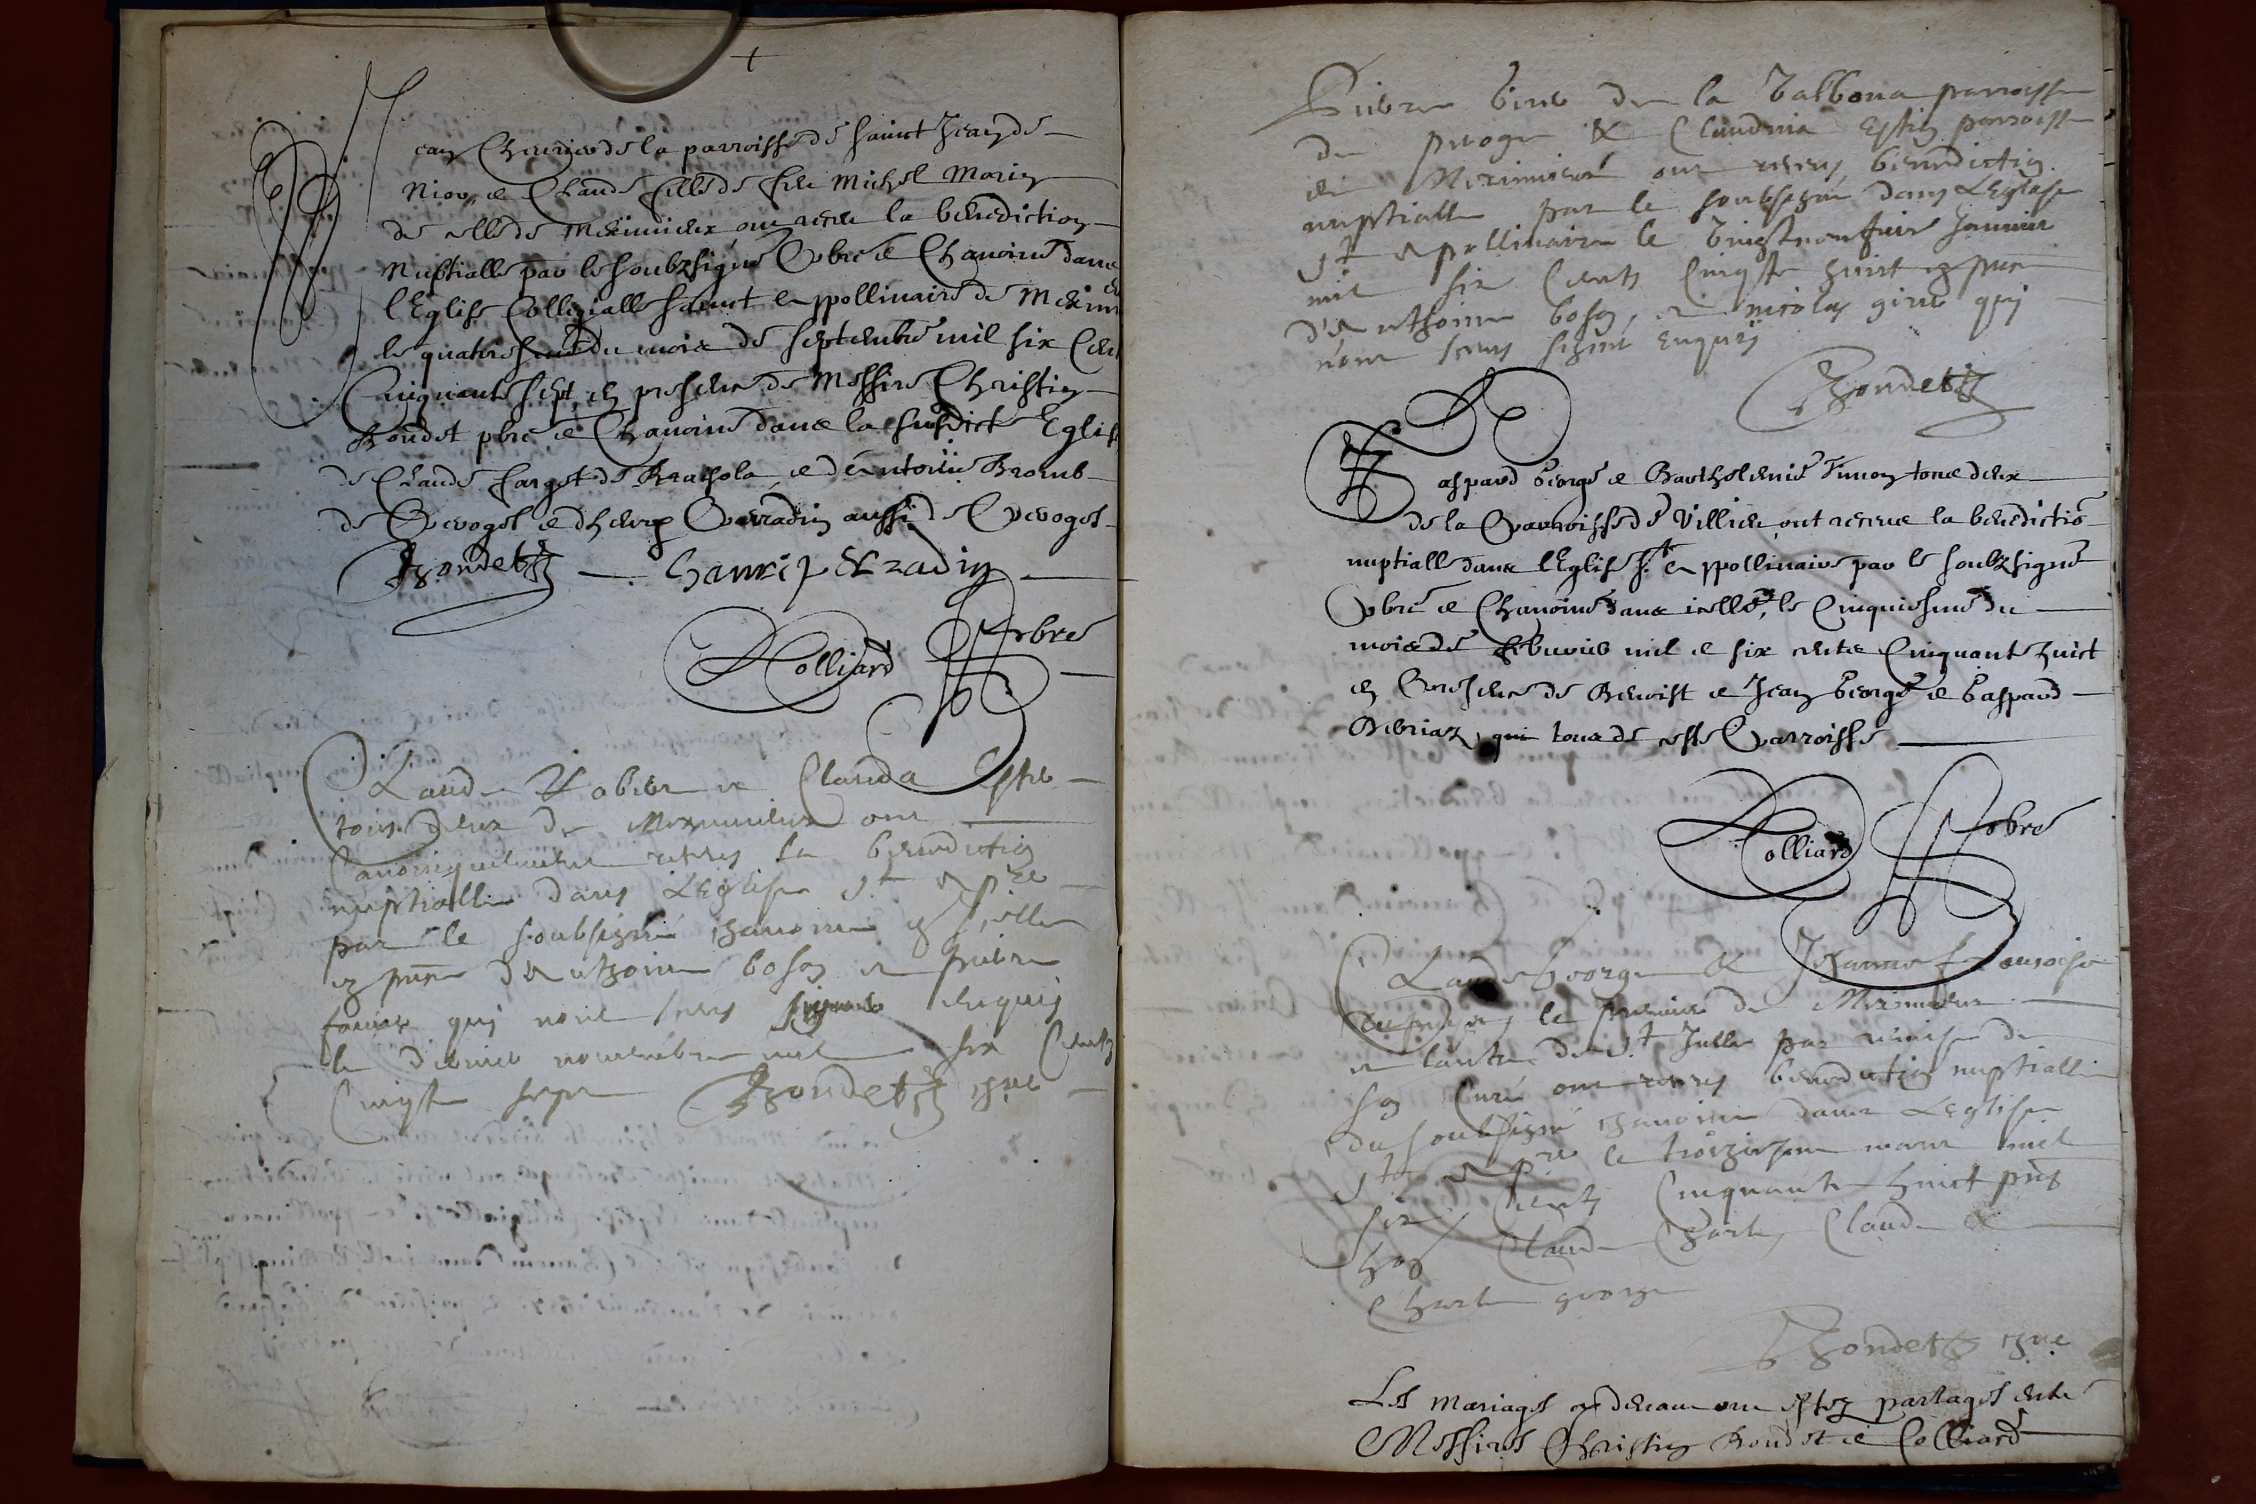 Jean Chevrier de la parroisse de sainct Jean de
Niost, et Claude fille de feu Michel Morin
de celle de Meximieux, ont receu la benediction
Nuptialle par le soubzsigné pbre et Chanoine dans
l'Eglise Collegialle sainct Appollinaire de Meximi
le quatoriesme du mois de septembre mil six Cent
Cinquante sept, en presence de Messire Christin
Rondet pbre et Chanoine dans la susdicte Eglise
de Claude farget de et d'Antoine
de Peroges et d'henry Parradin aussi de Peroges
Rondet henri paradin
Colliard pbre
Claude et Clauda
tous deux de Meximieux ont
Canoniquement receus la benediction
nuptialle dans L'Eglise st Apre
par le soubsigné chanoine en icelle
en pnce d'Anthoine boson et pierre
qui n'ont sceus signer enquis
le dernier novembre mil six Cents
Cinqte sept Rondet chne
Pierre de la Valbona parroisse
de peroge & Claudina parroisse
de Meximieux ont receus benediction
nuptialle par le soubsigné dans L'Eglise
st Apollinaire le vingtneufvie Janvier
mil six Cents Cinqte huict en pnce
d'Anthoine boson, et nicolas qui
n'ont sceus signer enquis
Rondet
Gaspard George et Barthelemie Simon tous deux
de la Parroisse de Villieu ont receus la benedictio
nuptialle dans l'Eglise St Appollinaire par le soubzsigné
Pbre et Chanoine dans icelle, le Cinquiesme du
mois de febvrier mil et six cents Cinquante huict
en Presence de Benoist et Jean George et Gaspard
tous de ceste Parroisse
Colliard pbre
Claude George & Jehanne francoise
le premier de Meximieux
et lautre de St Julle par remise de
son Curé ont receus benediction nuptialle
du soubsigné chanoine dans L'Eglise
st Apre le troiziesme mars mil
six Cents Cinquante huict pnts
Claude Claude &
Charle george
Rondet chne
Les mariages cy devant ont estez partages entre
Messires Christin Rondet et Colliard